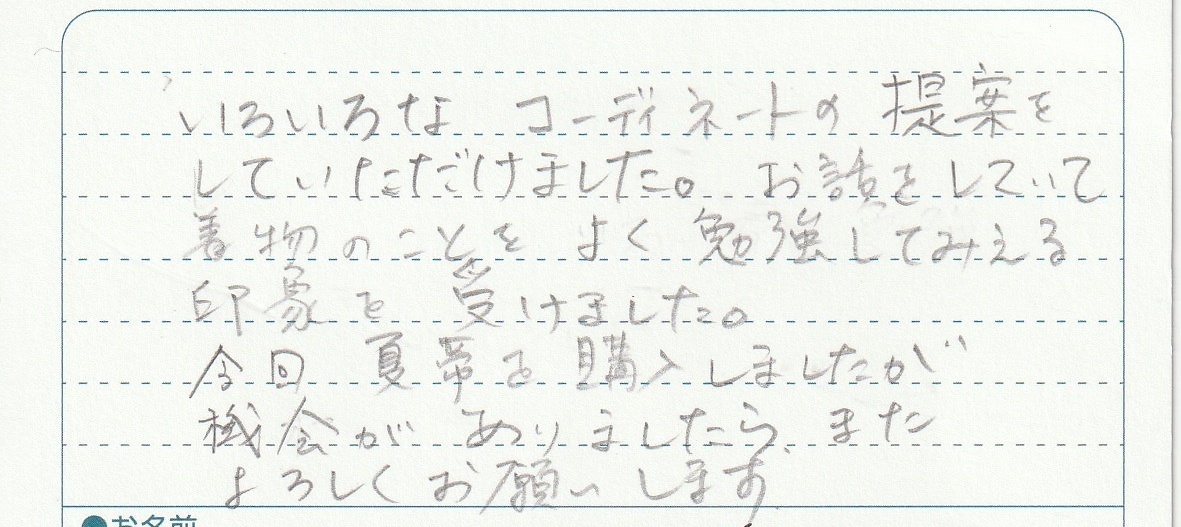 いろいろな コーディネートの 提案を
していただけました。お話をしていて
着物のことを よく 勉強してみえる
印象を 受けました。
今回 夏帯を 購入しましたが
機会が ありましたら、また
よろしくお願いします。
●お名前